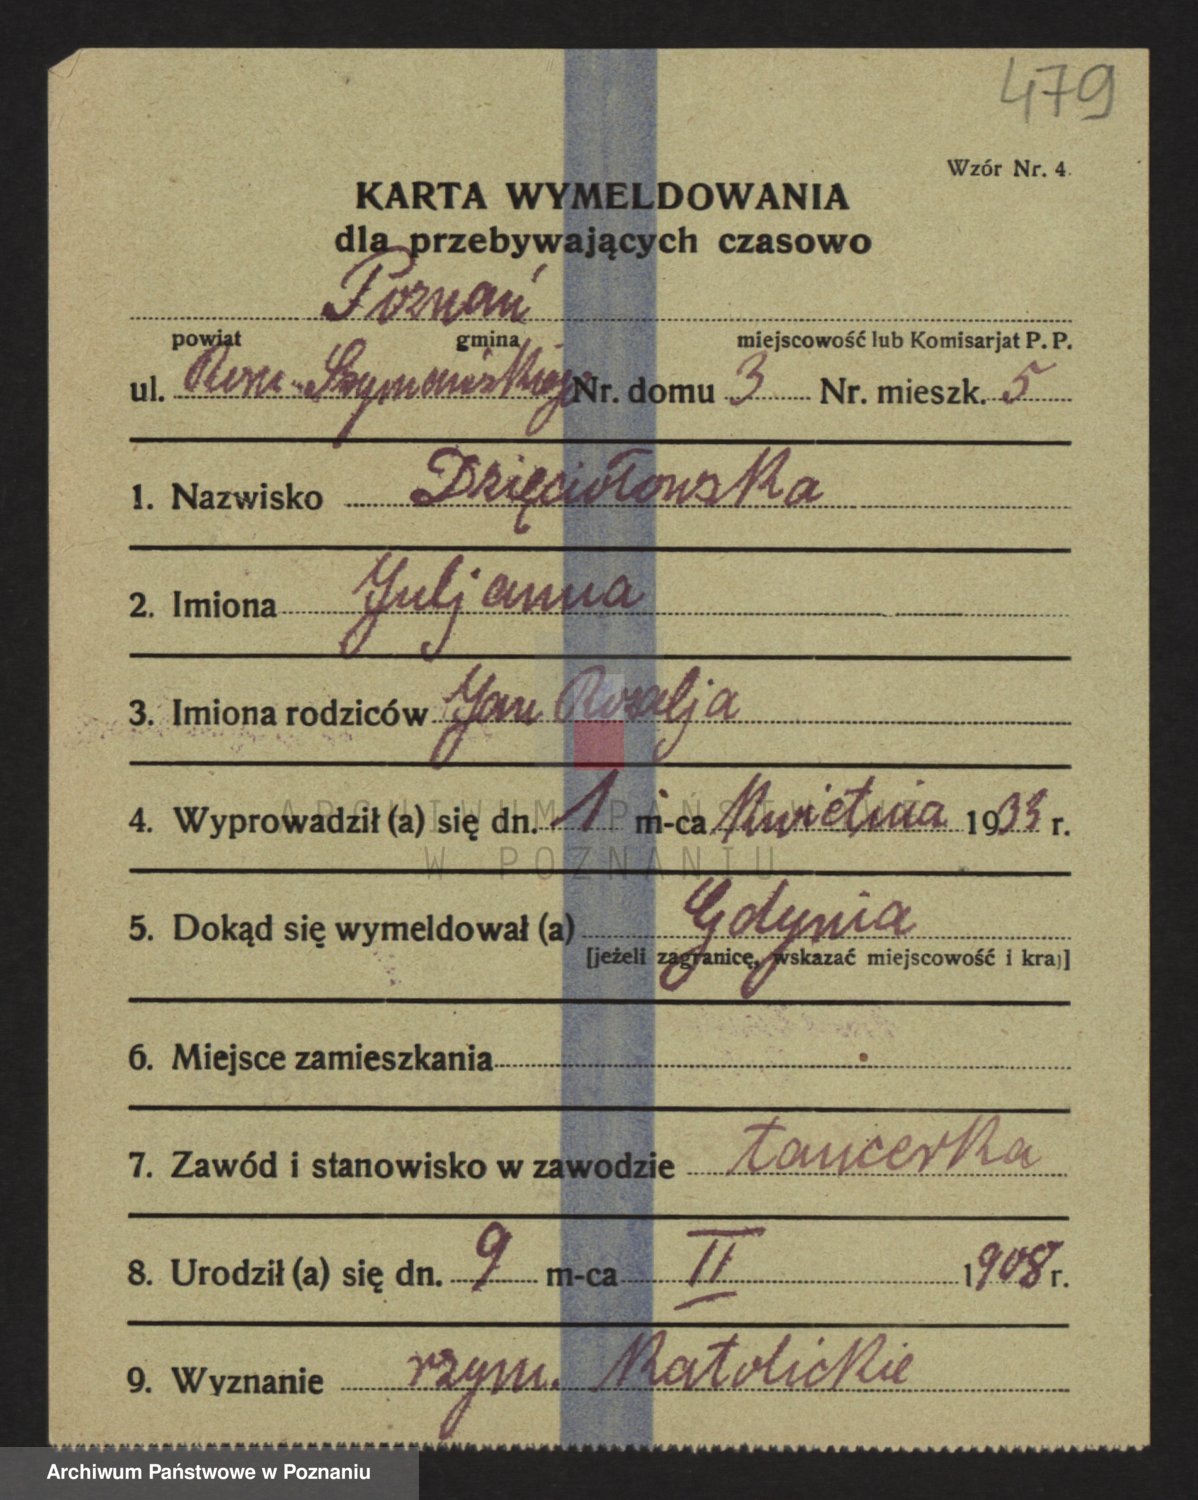 479
Wzór Nr. 4
KARTA WYMELDOWANIA
dla przebywających czasowo
Poznań
powiat gmina miejscowość lub Komisarjat P. P.
ul. Rom. Szymańskiego Nr. domu 3 Nr. mieszk. 5
1. Nazwisko Dzięciołowska
2. Imiona Juljanna
3. Imiona rodziców Jan Rozalja
4. Wyprowadził (a) się dn. 1 m-ca Kwietnia 1933 r.
ARCHIWUM PAŃSTWOWE
W POZNANIU
5. Dokąd się wymeldował (a) Gdynia
[jeżeli zagranicę, wskazać miejscowość i kraj]
6. Miejsce zamieszkania
7. Zawód i stanowisko w zawodzie tancerka
8. Urodził (a) się dn. 9 m-ca II 1908 r.
9. Wyznanie rzym. Katolickie
Archiwum Państwowe w Poznaniu